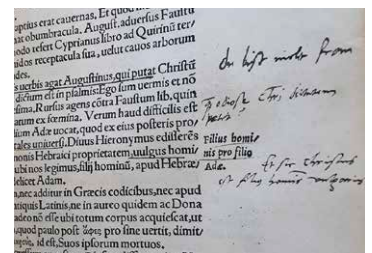 aptius erat cauernas, Et quod
nat obumbracula. August. aduersus Faustũ
modo refert Cyprianus libro ad Quirinũ ter/
nidos receptacula sua, uelut cauos arborum
des.
is uerbis agat Augustinus, qui putat Christũ
dictum est in psalmis: Ego sum uermis et nõ
sima. Rursus agens cõtra Faustum lib. quin
atum ex fœmina. Verum haud difficilis est
lium Adæ uocat, quod ex eius posteris pro/
tales uniuersi. Diuus Hieronymus edifferẽs
nonis Hebraici proprietatem, uulgus homi/
ubi nos legimus, filij hominũ, apud Hebræ/
ilicet Adam.
nec additur in Græcis codicibus, nec apud
ntiquis Latinis, ne in aureo quidem ac Dona
adeo nõ esse ubi totum corpus acquiescat, ut
quod paulo post ἄφες pro sine uertit, dimit/
id est, Suos ipsorum mortuos.
du bist nicht from
Filius homi/
nis pro filio
Adæ.